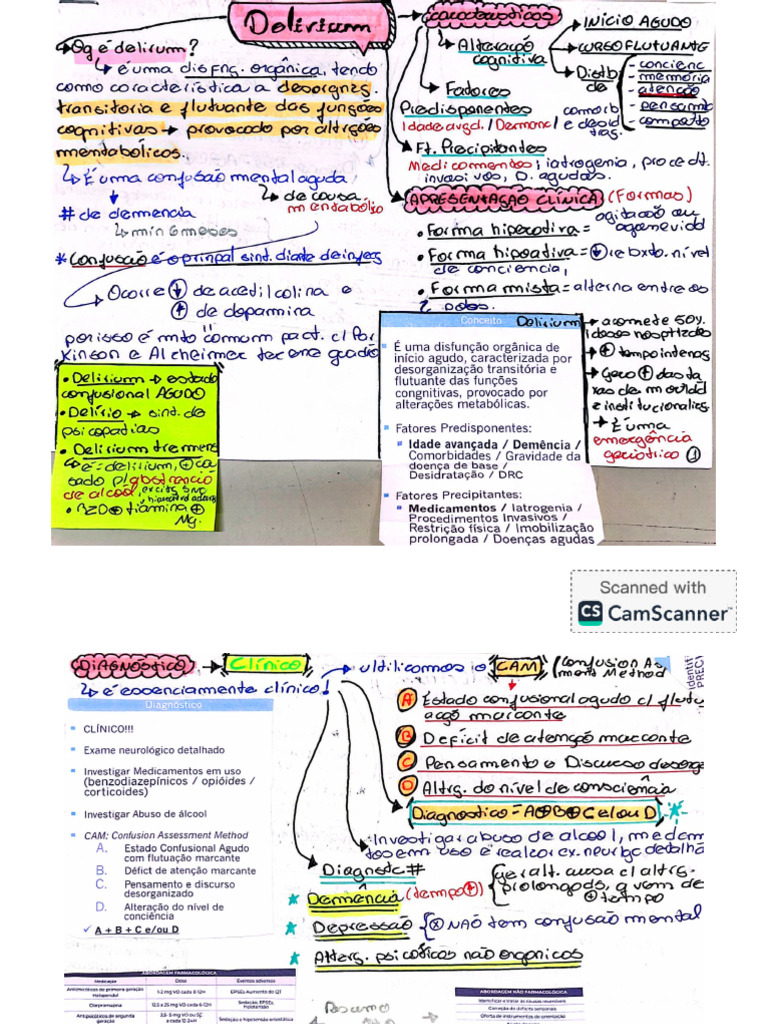 Delirium
→ Oq é delirium?
↳ é uma disfnç. orgânica, tendo
como característica a desorgnzç.
transitória e flutuante das funções
cognitivas → provocado por altrções
mentabólicos.
↳ É uma confusão mental aguda
↳ de causa
mentabólio
# de demencia
↳ min 6 meses
* Confusão é o prinpal sint. diante de infecç
↳ Ocorre ↓ de acetilcolina e
↑ de dopamina
por isso é mto comum pact. c/ Par
Kinson e Alcheimer ter eme grado
• Delirium → estado
confusional AGUDO
• Delírio → sint. de
psicopatias
• Delirium tremens
↳ é = delirium, ca
sado p/ abstnencia
de alcool,
• BZD ⊕ tiamina ⊕
Mg.
características
→ Alteraçaõ
cognitiva
→ INÍCIO AGUDO
→ CURSO FLUTUANTE
→ Distb
de
- concienc
- memória
- atenção
- pensamto
- compoto
→ Fatores
Predisponentes
Idade avgd. / Demenc / comorb
e desid
tras.
↳ Ft. Precipitantes
Medicamentos; iatrogenia, procedt.
invasivos, D. agudas.
APRESENTAÇÃO CLÍNICA (Formas)
• Forma hiperativa = agitação ou
• Forma hipoativa = ↓ re bxto. nível
de conciencia,
• Forma mista = alterna entre os
2 polos.
Conceito Delirium
É uma disfunção orgânica de
início agudo, caracterizada por
desorganização transitória e
flutuante das funções
congnitivas, provocado por
alterações metabólicas.
Fatores Predisponentes:
Idade avançada / Demência /
Comorbidades / Gravidade da
doença de base /
Desidratação / DRC
Fatores Precipitantes:
Medicamentos / Iatrogenia /
Procedimentos Invasivos /
Restrição física / Imobilização
prolongada / Doenças agudas
→ acomete 50%.
idosos nosptlzados
→ ⊕ tempo intenos
→ Gera ⊕ das ta
xas de morldd
e institucionalizç
→ É uma
emergência
geriátrica !
Scanned with
CS CamScanner™
DIAGNÓSTICO → Clínico
→ ultilizamos o CAM (Confusion As
ment Method
↳ é essenciamente clínico!
identifi
PRECI
Diagnóstico
CLÍNICO!!!
Exame neurológico detalhado
Investigar Medicamentos em uso
(benzodiazepínicos / opióides /
corticoides)
Investigar Abuso de álcool
CAM: Confusion Assessment Method
A. Estado Confusional Agudo
com flutuação marcante
B. Déficit de atenção marcante
C. Pensamento e discurso
desorganizado
D. Alteração do nível de
conciência
✓ A + B + C e/ou D
A Estado confusional agudo c/ flutu
açaõ marcante
B Deficit de atenção marcante
C Pensamento e Discurso desorga
D Altrç. do nível de consciência
Diagnostico = A⊕B⊕C e/ou D *
Investigar abuso de alcool, medcam
tos em uso e realzar ex. neurlgc detalha
Diagnstc #
* Demência (tempo ↑) geralt. causa c/ altrç.
prolongada, a vem de
⊕ tempo
* Depressão ⊗ NAÕ tem confusão mental
* Altrç. psicóticas não organicos
ABORDAGEM FARMACOLÓGICA
Medicação Dose Eventos adversos
Antipsicóticos de primeira geração
Haloperidol
1-2 mg VO cada 8-12H
EPSEs Aumento do QT
Clorpramazina
12,5 a 25 mg VO cada 6-12H
Sedação; EPSEs
Antipsicóticos de segunda
geração
Sedação e hipotensão ortostática
Resumo
ABORDAGEM NÃO FARMACOLÓGICA
Identificar e tratar as causas reversíveis
Correção do déficits sensoriais
Oferta de instrumentos de orientação